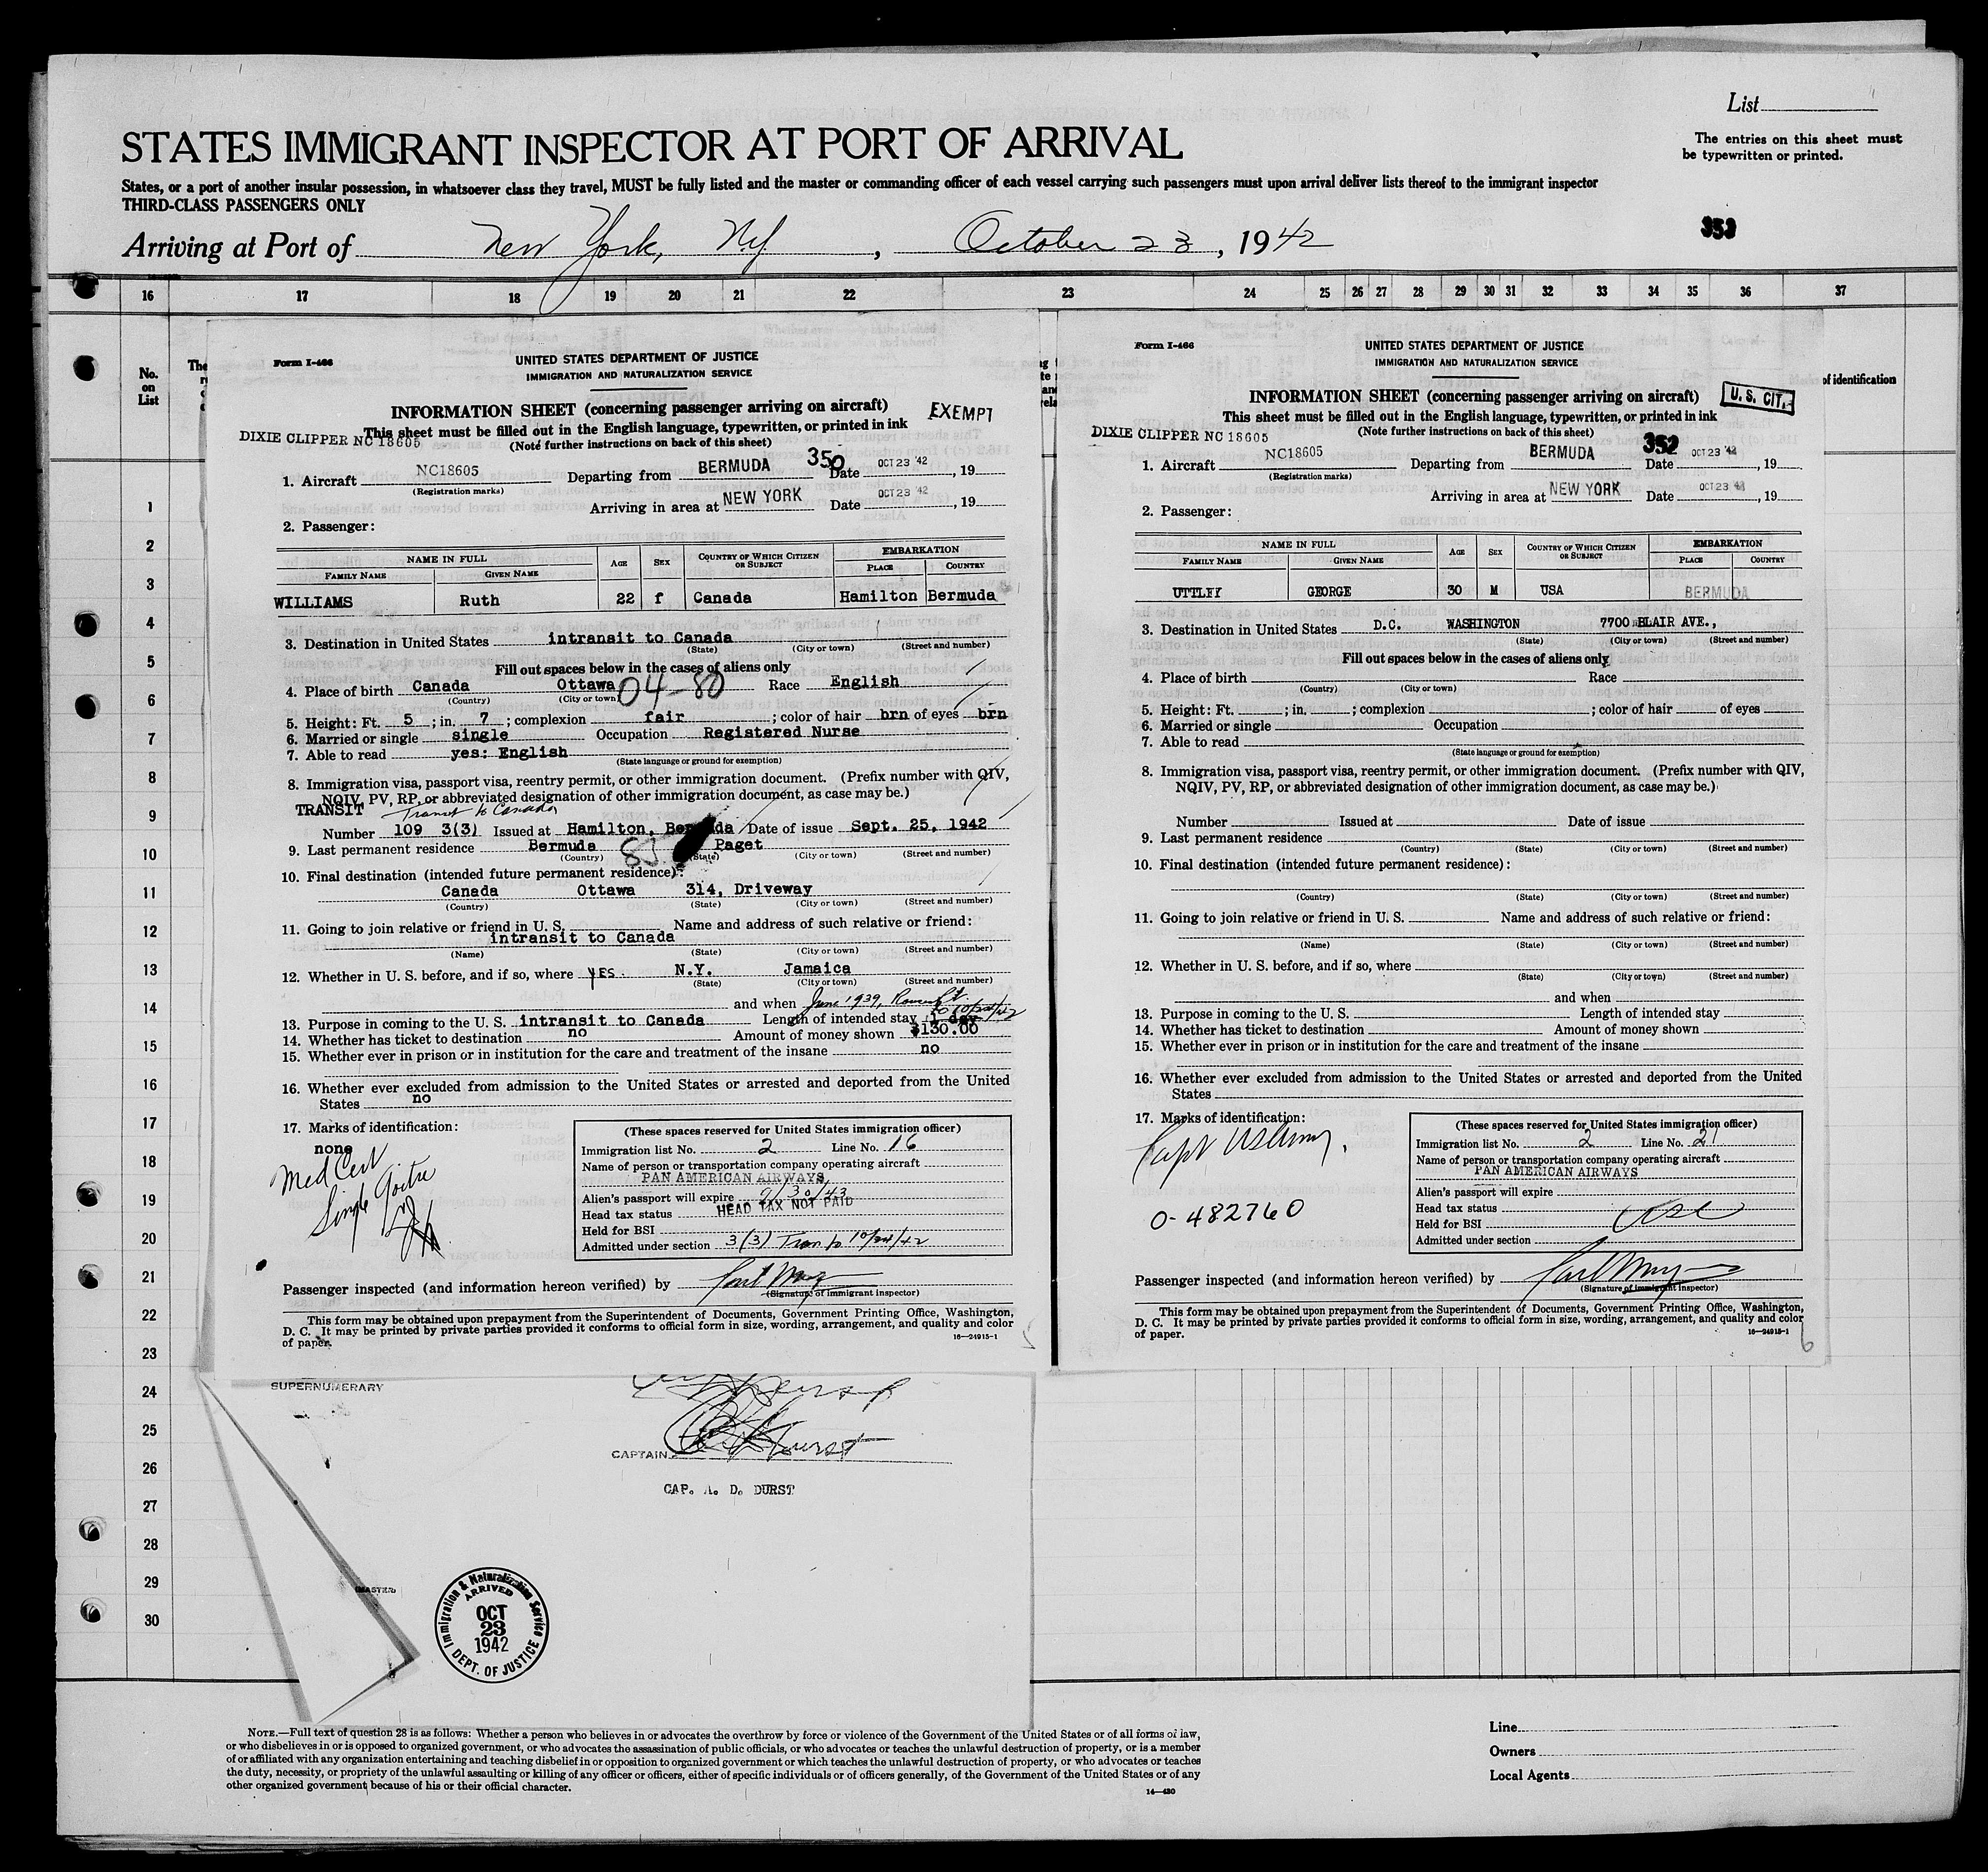 List
STATES IMMIGRANT INSPECTOR AT PORT OF ARRIVAL
The entries on this sheet must
be typewritten or printed.
States, or a port of another insular possession, in whatsoever class they travel, MUST be fully listed and the master or commanding officer of each vessel carrying such passengers must upon arrival deliver lists thereof to the immigrant inspector
THIRD-CLASS PASSENGERS ONLY
353
Arriving at Port of New York, N.Y., October 23, 1942
16 17 18 19 20 21 22 23 24 25 26 27 28 29 30 31 32 33 34 35 36 37
No.
on
List
of identification
1
2
3
4
5
6
7
8
9
10
11
12
13
14
15
16
17
18
19
20
21
22
23
24
25
26
27
28
29
30
Form I-466
UNITED STATES DEPARTMENT OF JUSTICE
IMMIGRATION AND NATURALIZATION SERVICE
INFORMATION SHEET (concerning passenger arriving on aircraft)
EXEMPT
This sheet must be filled out in the English language, typewritten, or printed in ink
DIXIE CLIPPER NC 18605
(Note further instructions on back of this sheet)
350
1. Aircraft NC18605 Departing from BERMUDA Date OCT 23 '42, 19
(Registration marks)
Arriving in area at NEW YORK Date OCT 23 '42, 19
2. Passenger:
NAME IN FULL AGE SEX COUNTRY OF WHICH CITIZEN OR SUBJECT EMBARKATION
FAMILY NAME GIVEN NAME PLACE COUNTRY
WILLIAMS Ruth 22 f Canada Hamilton Bermuda
3. Destination in United States intransit to Canada
(State) (City or town) (Street and number)
Fill out spaces below in the cases of aliens only
4. Place of birth Canada Ottawa 04-80 Race English
(Country) (City or town)
5. Height: Ft. 5; in. 7; complexion fair; color of hair brn of eyes brn
6. Married or single single Occupation Registered Nurse
7. Able to read yes: English
(State language or ground for exemption)
8. Immigration visa, passport visa, reentry permit, or other immigration document. (Prefix number with QIV,
NQIV, PV, RP, or abbreviated designation of other immigration document, as case may be.)
TRANSIT Transit to Canada
Number 109 3(3) Issued at Hamilton, Bermuda Date of issue Sept. 25, 1942
9. Last permanent residence Bermuda 85 Paget
(Country) (State) (City or town) (Street and number)
10. Final destination (intended future permanent residence):
Canada Ottawa 314, Driveway
(Country) (State) (City or town) (Street and number)
11. Going to join relative or friend in U. S. Name and address of such relative or friend:
intransit to Canada
(Name) (State) (City or town) (Street and number)
12. Whether in U. S. before, and if so, where YES. N.Y. Jamaica
(State) (City or town) (Street and number)
and when June 1939,
13. Purpose in coming to the U. S. intransit to Canada Length of intended stay 1 day to 10/24/42
14. Whether has ticket to destination no Amount of money shown $130.00
15. Whether ever in prison or in institution for the care and treatment of the insane no
16. Whether ever excluded from admission to the United States or arrested and deported from the United
States no
17. Marks of identification:
none
Med Cert
Simple Goitre
(These spaces reserved for United States immigration officer)
Immigration list No. 2 Line No. 16
Name of person or transportation company operating aircraft
PAN AMERICAN AIRWAYS
Alien's passport will expire 9/30/43
Head tax status HEAD TAX NOT PAID
Held for BSI
Admitted under section 3(3) Tran to 10/24/42
Passenger inspected (and information hereon verified) by
(Signature of immigrant inspector)
This form may be obtained upon prepayment from the Superintendent of Documents, Government Printing Office, Washington,
D. C. It may be printed by private parties provided it conforms to official form in size, wording, arrangement, and quality and color
of paper.
16—24915-1
Form I-466
UNITED STATES DEPARTMENT OF JUSTICE
IMMIGRATION AND NATURALIZATION SERVICE
INFORMATION SHEET (concerning passenger arriving on aircraft)
U. S. CIT.
This sheet must be filled out in the English language, typewritten, or printed in ink
DIXIE CLIPPER NC 18605
(Note further instructions on back of this sheet)
352
1. Aircraft NC18605 Departing from BERMUDA Date OCT 23 '42, 19
(Registration marks)
Arriving in area at NEW YORK Date OCT 23 '42, 19
2. Passenger:
NAME IN FULL AGE SEX COUNTRY OF WHICH CITIZEN OR SUBJECT EMBARKATION
FAMILY NAME GIVEN NAME PLACE COUNTRY
UTTLEY GEORGE 30 M USA BERMUDA
3. Destination in United States D.C. WASHINGTON 7700 BLAIR AVE.,
(State) (City or town) (Street and number)
Fill out spaces below in the cases of aliens only
4. Place of birth Race
(Country) (City or town)
5. Height: Ft. ; in. ; complexion ; color of hair of eyes
6. Married or single Occupation
7. Able to read
(State language or ground for exemption)
8. Immigration visa, passport visa, reentry permit, or other immigration document. (Prefix number with QIV,
NQIV, PV, RP, or abbreviated designation of other immigration document, as case may be.)
Number Issued at Date of issue
9. Last permanent residence
(Country) (State) (City or town) (Street and number)
10. Final destination (intended future permanent residence):
(Country) (State) (City or town) (Street and number)
11. Going to join relative or friend in U. S. Name and address of such relative or friend:
(Name) (State) (City or town) (Street and number)
12. Whether in U. S. before, and if so, where
(State) (City or town) (Street and number)
and when
13. Purpose in coming to the U. S. Length of intended stay
14. Whether has ticket to destination Amount of money shown
15. Whether ever in prison or in institution for the care and treatment of the insane
16. Whether ever excluded from admission to the United States or arrested and deported from the United
States
17. Marks of identification:
Capt US Army.
0-482760
(These spaces reserved for United States immigration officer)
Immigration list No. 2 Line No. 21
Name of person or transportation company operating aircraft
PAN AMERICAN AIRWAYS
Alien's passport will expire
Head tax status
Held for BSI
Admitted under section
Passenger inspected (and information hereon verified) by
(Signature of immigrant inspector)
This form may be obtained upon prepayment from the Superintendent of Documents, Government Printing Office, Washington,
D. C. It may be printed by private parties provided it conforms to official form in size, wording, arrangement, and quality and color
of paper.
16—24915-1
6
SUPERNUMERARY
CAPTAIN
CAP. A. D. DURST
MASTER
Immigration & Naturalization Service
ARRIVED
OCT
23
1942
DEPT. OF JUSTICE
NOTE.—Full text of question 28 is as follows: Whether a person who believes in or advocates the overthrow by force or violence of the Government of the United States or of all forms of law,
or who disbelieves in or is opposed to organized government, or who advocates the assassination of public officials, or who advocates or teaches the unlawful destruction of property, or is a member
of or affiliated with any organization entertaining and teaching disbelief in or opposition to organized government or which teaches the unlawful destruction of property, or who advocates or teaches
the duty, necessity, or propriety of the unlawful assaulting or killing of any officer or officers, either of specific individuals or of officers generally, of the Government of the United States or of any
other organized government because of his or their official character.
14—430
Line
Owners
Local Agents